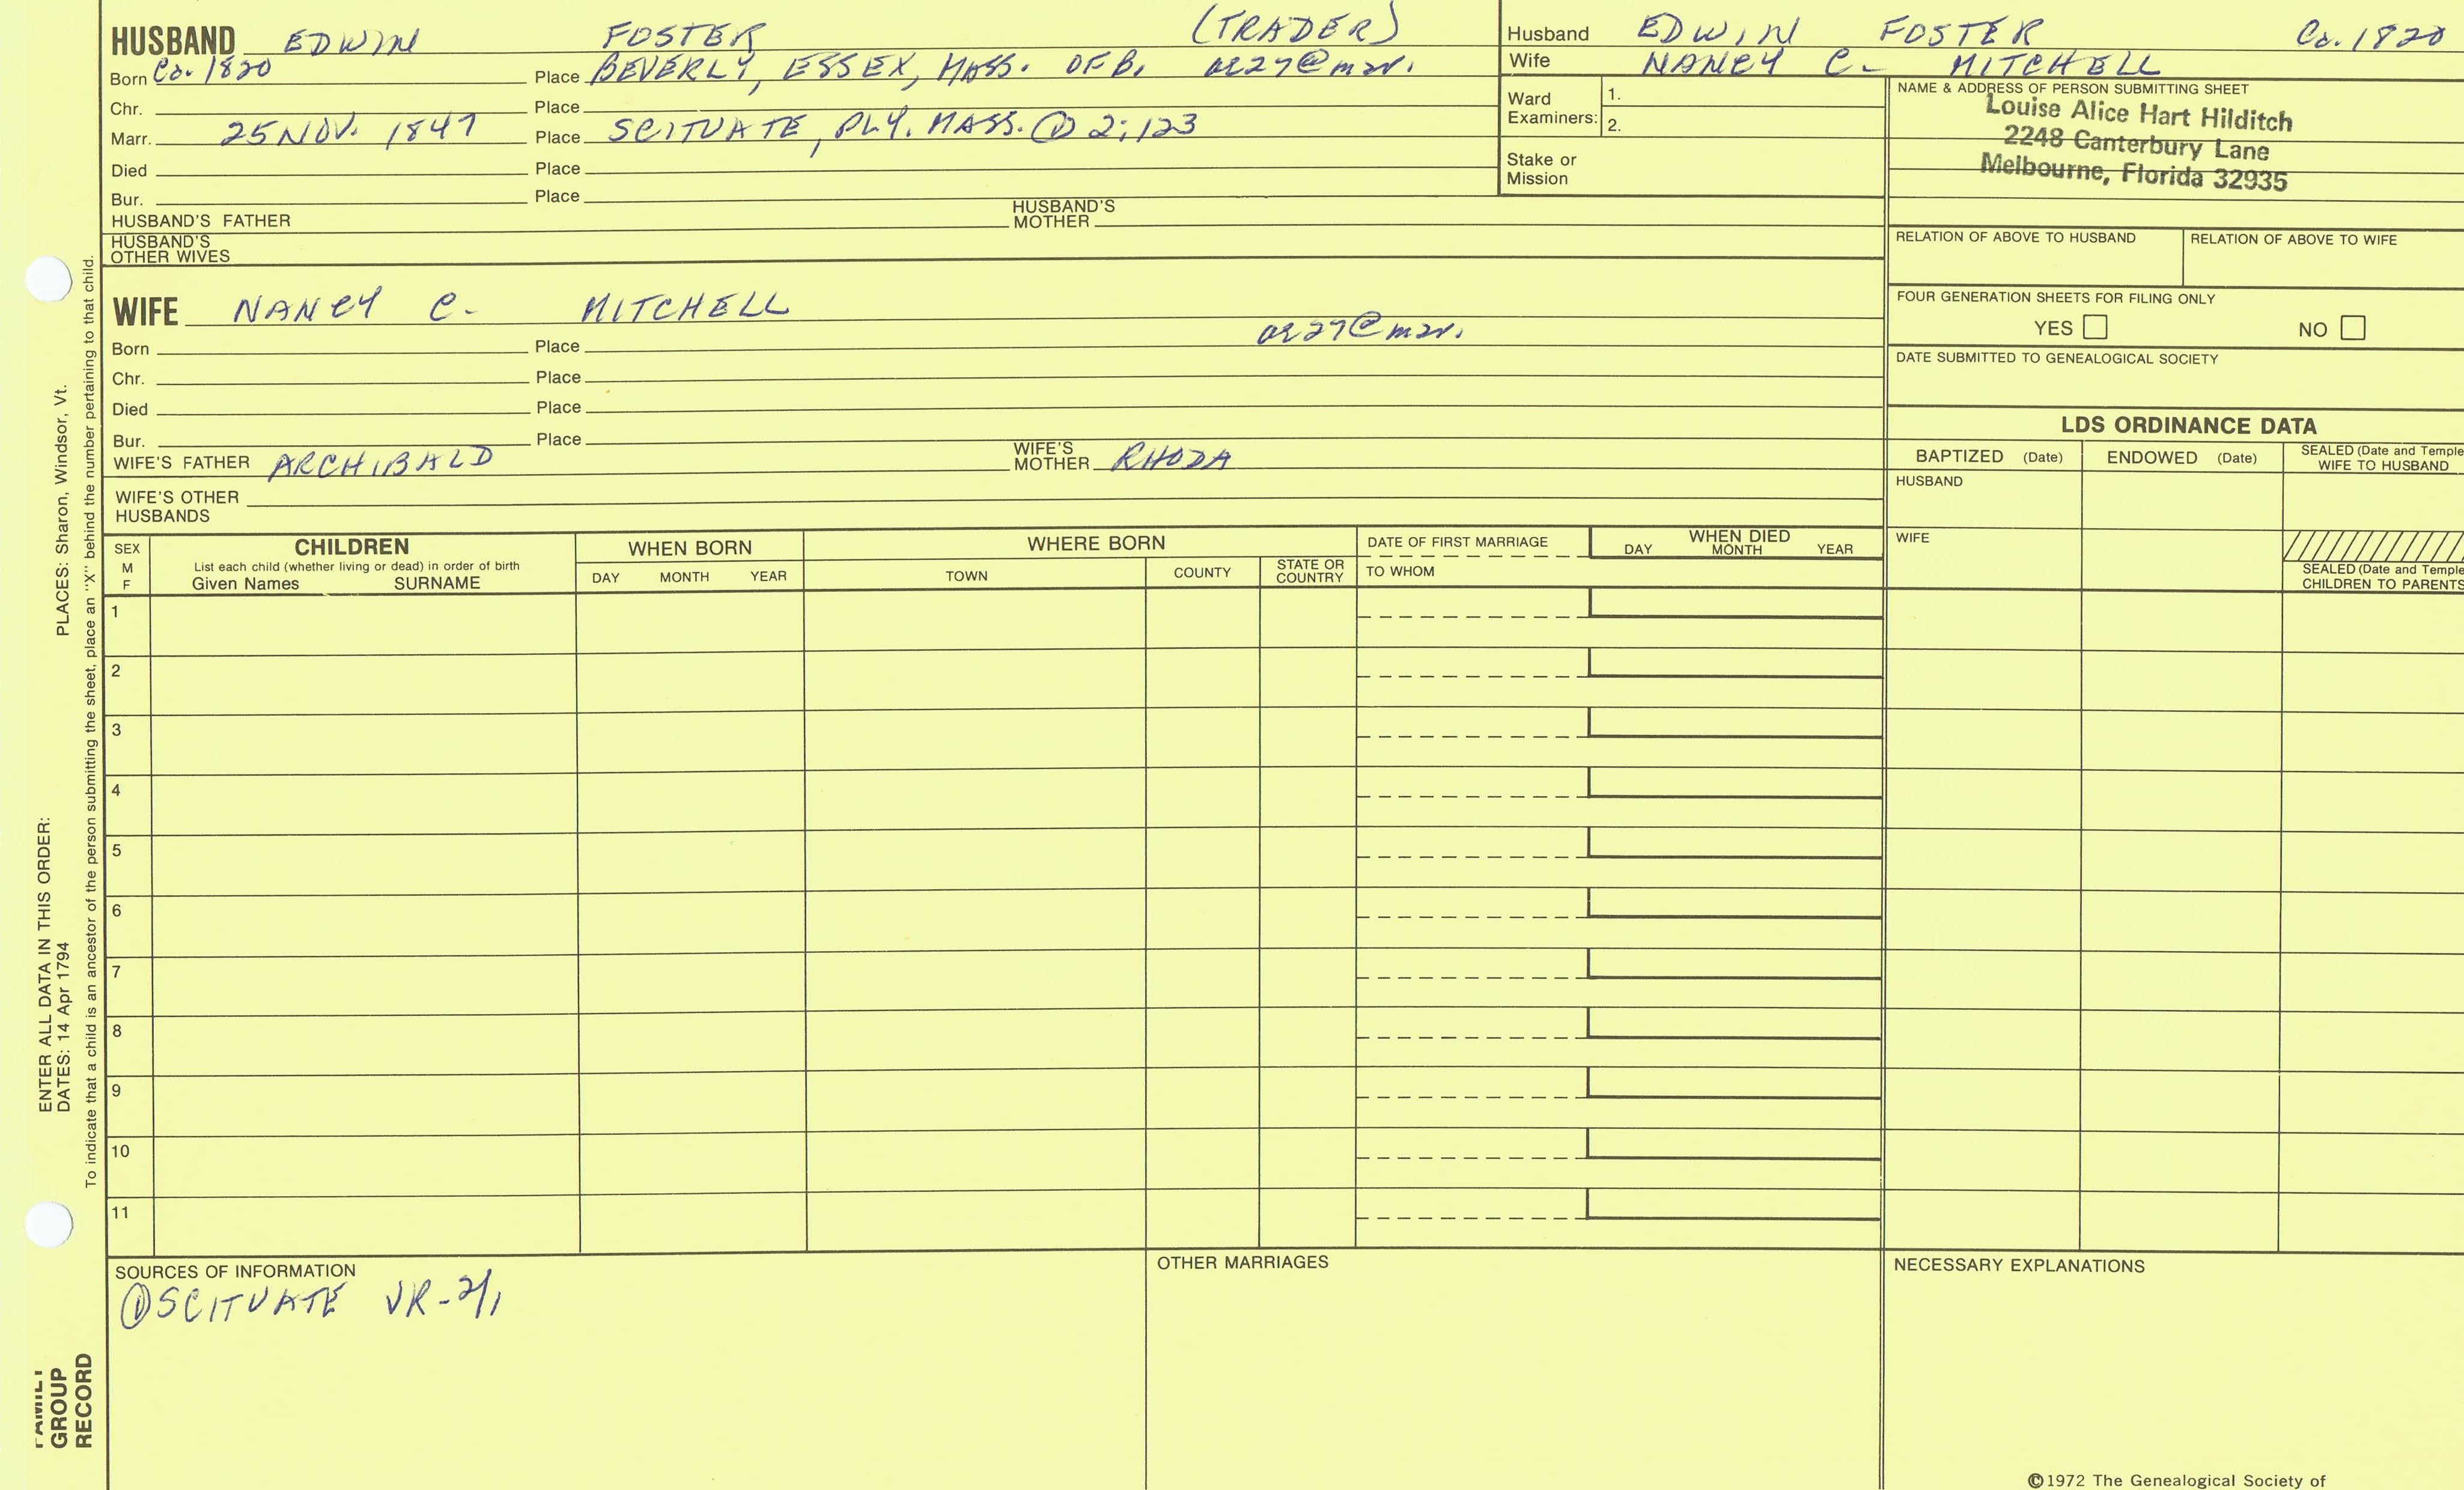 HUSBAND EDWIN FOSTER (TRADER)
Born Ca. 1820 Place BEVERLY, ESSEX, MASS. OF B. ae 27 @ mar.
Chr. Place
Marr. 25 NOV. 1847 Place SCITUATE, PLY. MASS. ① 2:123
Died Place
Bur. Place
HUSBAND'S FATHER HUSBAND'S MOTHER
HUSBAND'S OTHER WIVES
Husband EDWIN FOSTER Ca. 1820
Wife NANCY C. MITCHELL
Ward Examiners: 1.
2.
Stake or Mission
NAME & ADDRESS OF PERSON SUBMITTING SHEET
Louise Alice Hart Hilditch
2248 Canterbury Lane
Melbourne, Florida 32935
RELATION OF ABOVE TO HUSBAND RELATION OF ABOVE TO WIFE
FOUR GENERATION SHEETS FOR FILING ONLY
YES NO
DATE SUBMITTED TO GENEALOGICAL SOCIETY
WIFE NANCY C. MITCHELL
ae 27 @ mar.
Born Place
Chr. Place
Died Place
Bur. Place
WIFE'S FATHER ARCHIBALD WIFE'S MOTHER RHODA
WIFE'S OTHER HUSBANDS
LDS ORDINANCE DATA
BAPTIZED (Date) ENDOWED (Date) SEALED (Date and Temple
WIFE TO HUSBAND
HUSBAND
WIFE
SEALED (Date and Temple
CHILDREN TO PARENTS
SEX
M
F
CHILDREN
List each child (whether living or dead) in order of birth
Given Names SURNAME
WHEN BORN
DAY MONTH YEAR
WHERE BORN
TOWN COUNTY STATE OR COUNTRY
DATE OF FIRST MARRIAGE
TO WHOM
WHEN DIED
DAY MONTH YEAR
1
2
3
4
5
6
7
8
9
10
11
SOURCES OF INFORMATION
① SCITUATE VR-2/1
OTHER MARRIAGES
NECESSARY EXPLANATIONS
©1972 The Genealogical Society of
FAMILY
GROUP
RECORD
ENTER ALL DATA IN THIS ORDER:
DATES: 14 Apr 1794 PLACES: Sharon, Windsor, Vt.
To indicate that a child is an ancestor of the person submitting the sheet, place an "X" behind the number pertaining to that child.